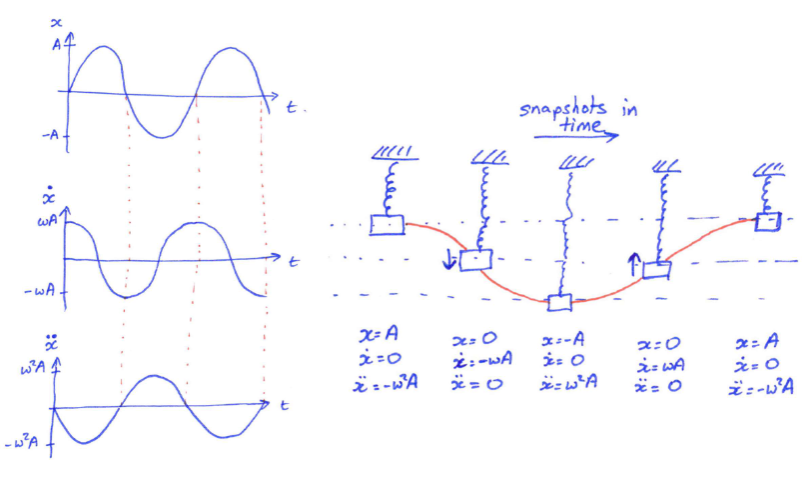 x
A
-A
t.
ẋ
ωA
-ωA
t
ẍ
ω²A
-ω²A
t
snapshots in
time
x=A
ẋ=0
ẍ=-ω²A
x=0
ẋ=-ωA
ẍ=0
x=-A
ẋ=0
ẍ=ω²A
x=0
ẋ=ωA
ẍ=0
x=A
ẋ=0
ẍ=-ω²A